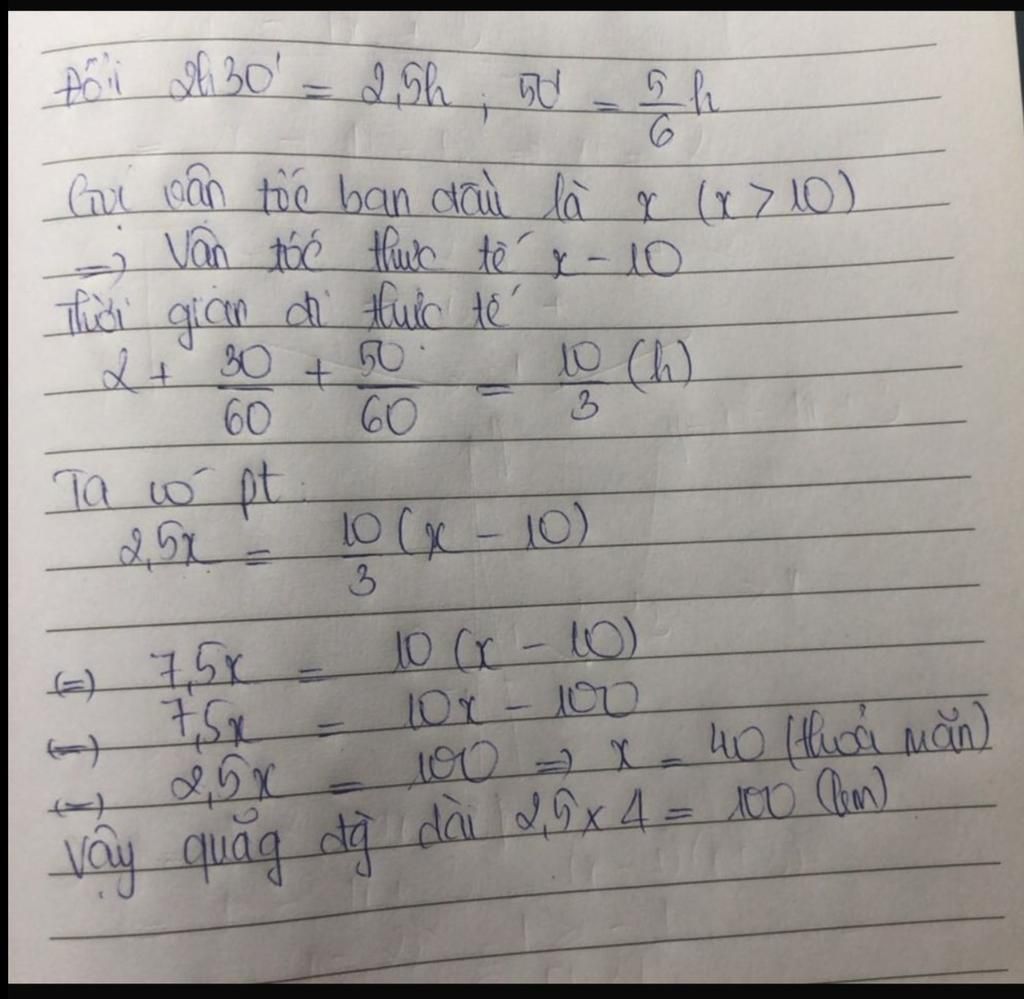 Đổi 2h30' = 2,5h ; 50' = 5/6 h
Gọi vận tốc ban đầu là x (x > 10)
=> Vận tốc thực tế x - 10
Thời gian đi thực tế
2 + 30/60 + 50/60 = 10/3 (h)
Ta có pt:
2,5x = 10/3 (x - 10)
(=) 7,5x = 10 (x - 10)
(=) 7,5x = 10x - 100
(=) 2,5x = 100 => x = 40 (thoả mãn)
Vậy quãg đg dài 2,5 x 4 = 100 (km)